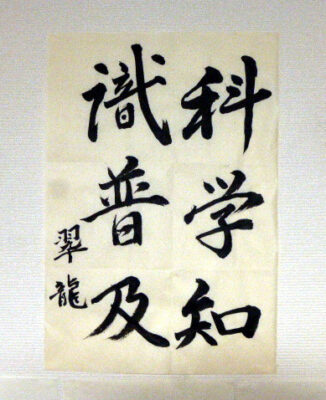 科学知
識普及
翠龍